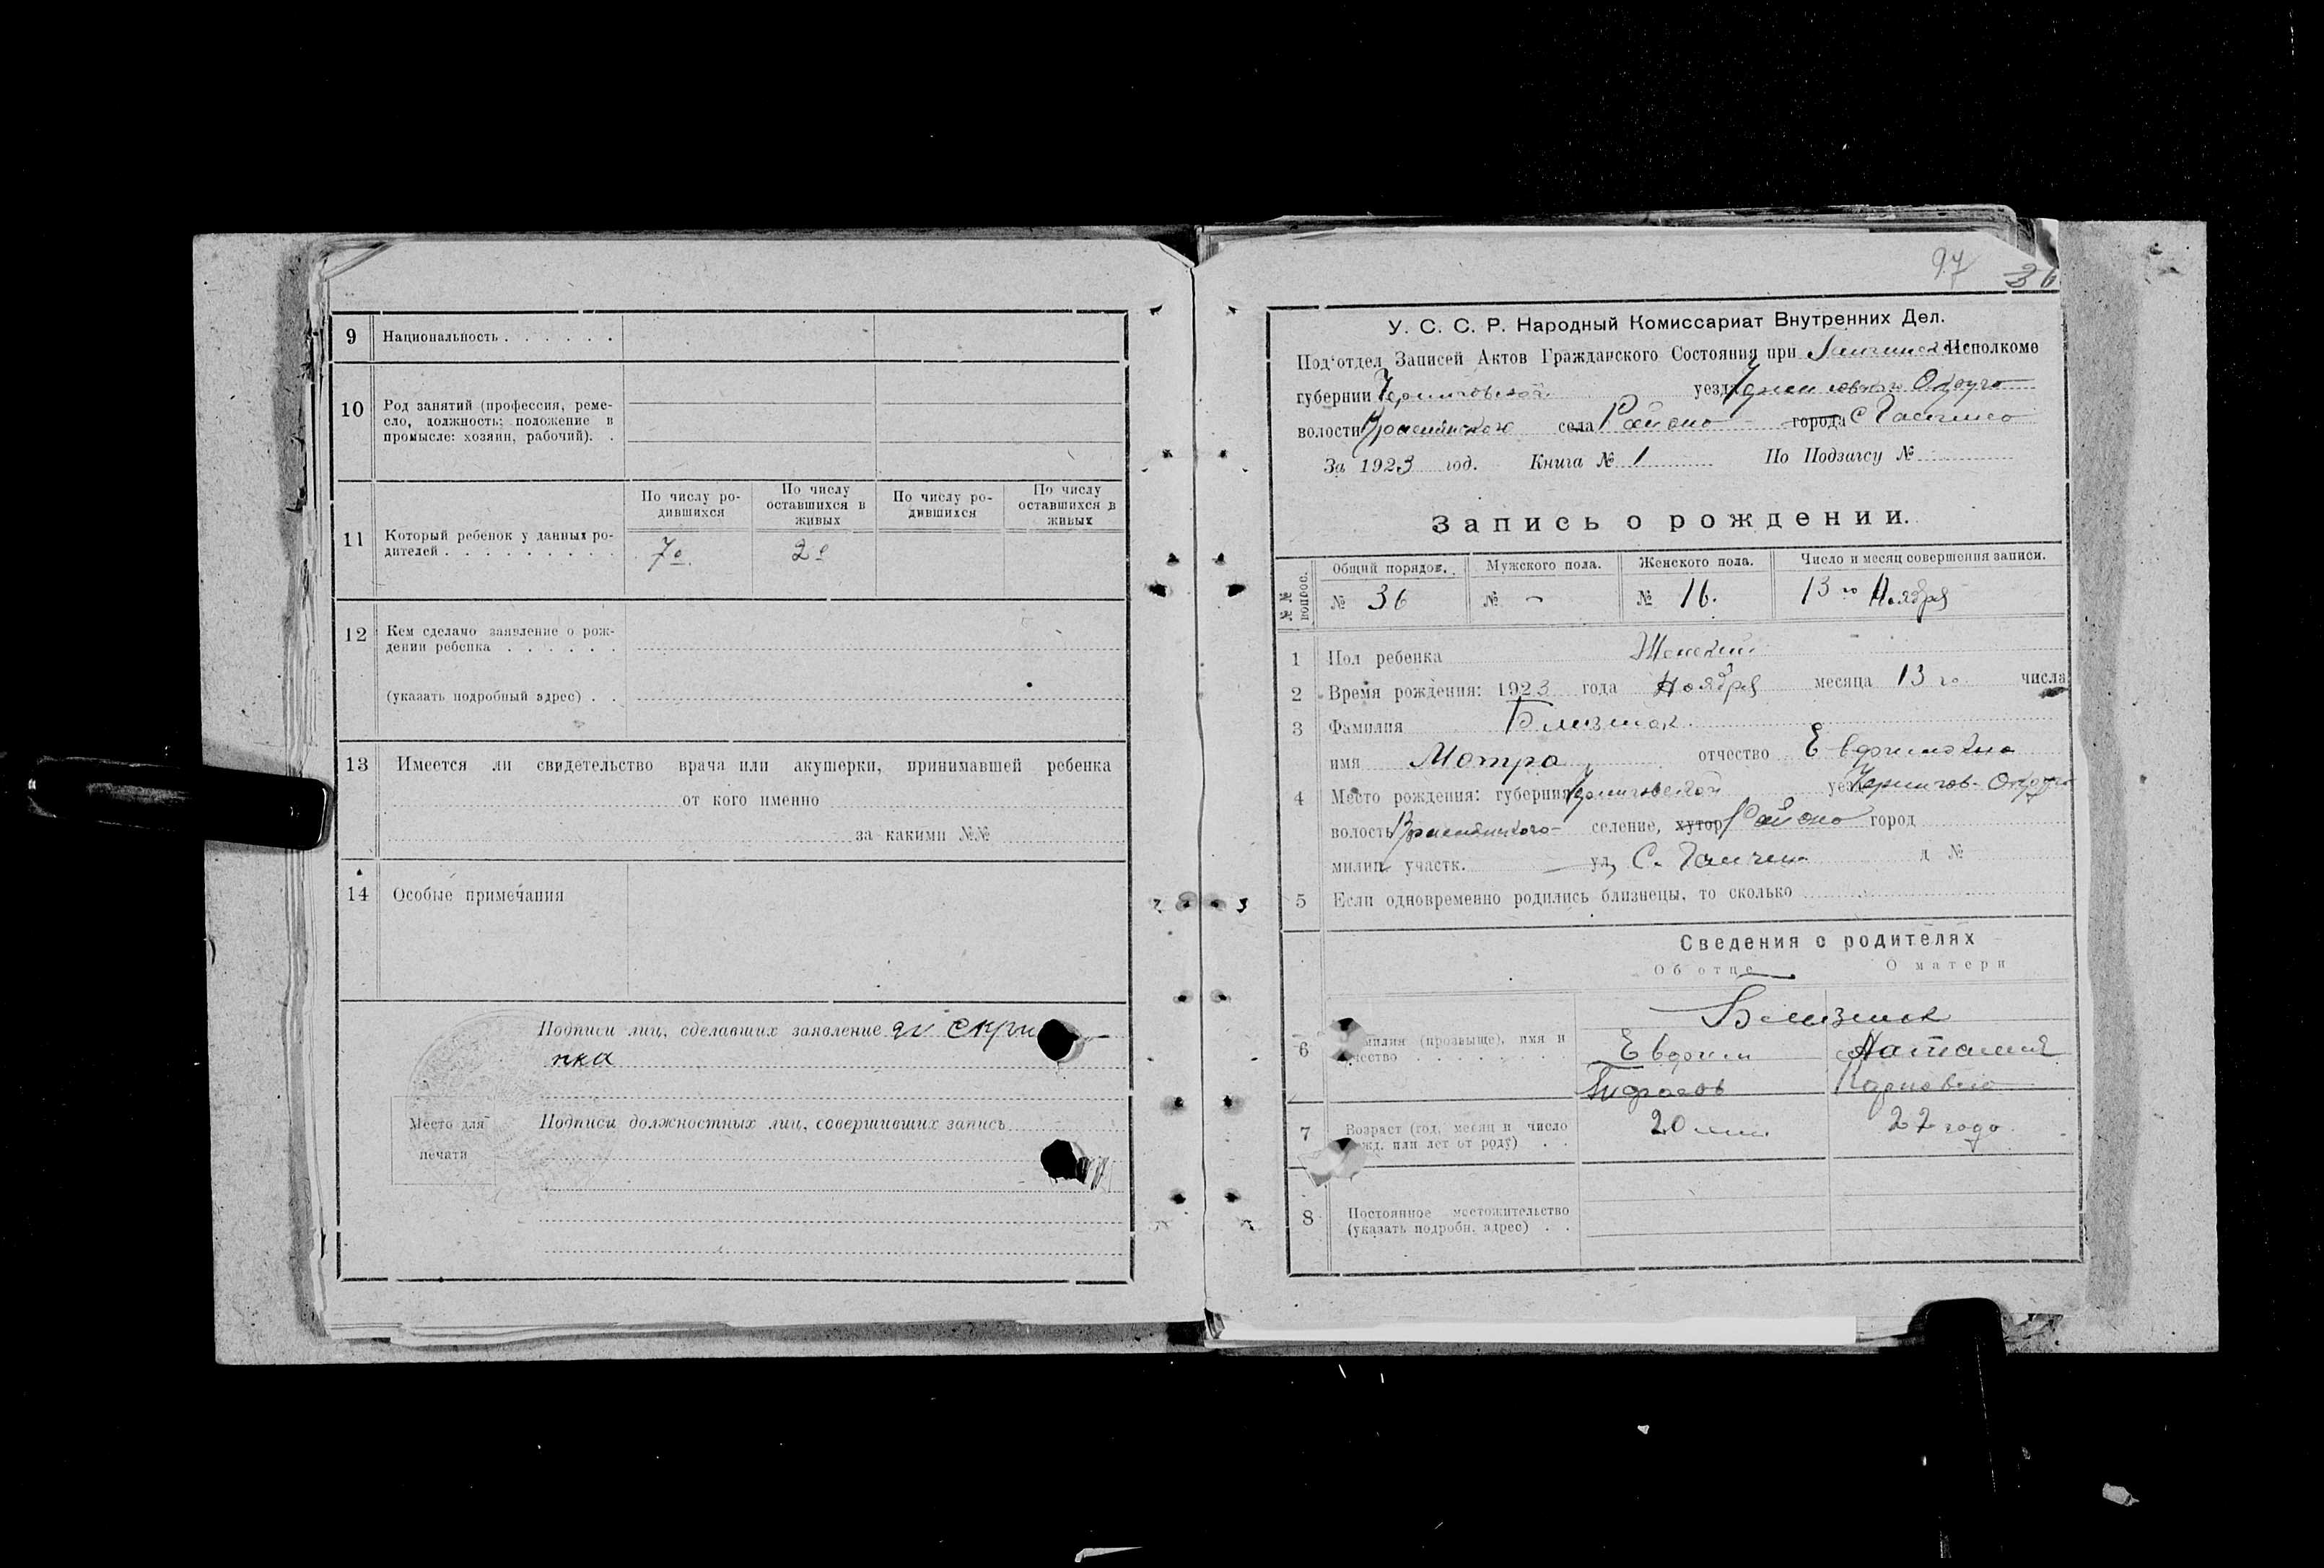 9 Национальность . . . . . .
10 Род занятий (профессия, реме-
сло, должность: положение в
промысле: хозяин, рабочий). .
11 Который ребенок у данных ро-
дителей . . . . . . . . .
По числу ро-
дившихся
По числу
оставшихся в
живых
По числу ро-
дившихся
По числу
оставшихся в
живых
7й 2й
12 Кем сделано заявление о рож-
дении ребенка . . . . . .
(указать подробный адрес) . .
13 Имеется ли свидетельство врача или акушерки, принимавшей ребенка
от кого именно
за какими №№
14 Особые примечания
Подписи лиц, сделавших заявление
нка
Подписи должностных лиц, совершивших запись
Место для
печати
97 36
У. С. С. Р. Народный Комиссариат Внутренних Дел.
Под‘отдел Записей Актов Гражданского Состояния при Исполкоме
губернии Черниговской уезда Черниговского Округа
волости села Района города с
За 1923 год. Книга № 1 По Подзагсу №
Запись о рождении.
№№ вопрос.
Общий порядов. Мужского пола. Женского пола. Число и месяц совершения записи.
№ 36 № - № 16. 13го Ноября
1 Пол ребенка Женский
2 Время рождения: 1923 года Ноября месяца 13го числа
3 Фамилия Близнюк
имя Мотра отчество Евфимовна
4 Место рождения: губерния Черниговской уезд Чернигов. Округа
волость селение, хутор Района город
милиц. участк. ул, С. д №
5 Если одновременно родились близнецы, то сколько
Сведения о родителях
Об отце О матери
6 милия (прозвыще), имя и
чество . . . . . . . .
Близнюк
Евфим Наталия
Карповна
7 Возраст (год, месяц и число
жд. или лет от роду) . .
20 лет. 22 года.
8 Постоянное местожительство
(указать подробн. адрес) . .